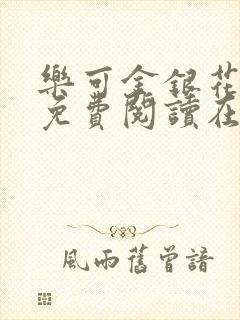 樂可金銀花
免費閱讀在
風雨舊曾諳